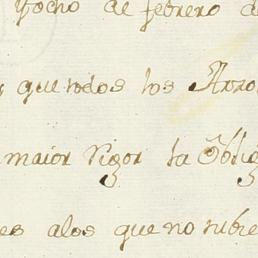 yocho de febrero d
que todos los Arro
maior Rigor la Oblig
es alos que no tubie